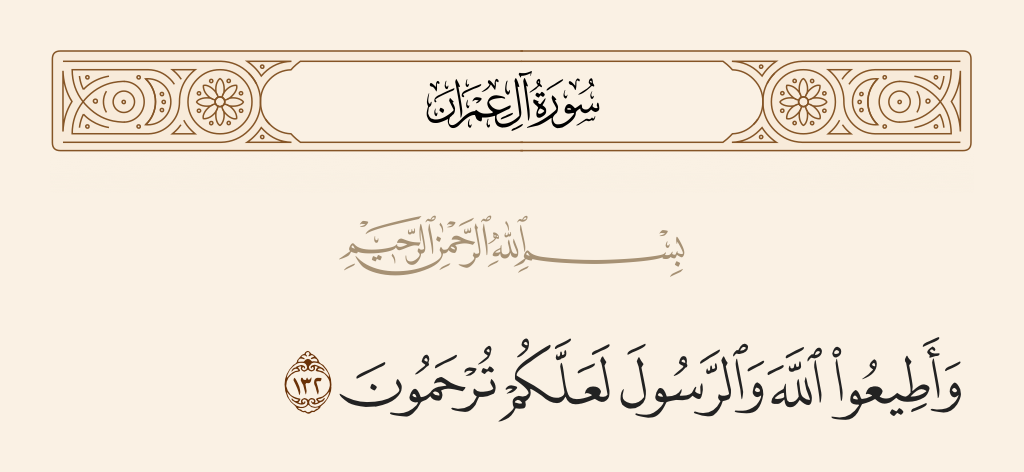 سُورَةُ آلِ عِمْرَانَ
بِسْمِ ٱللَّهِ ٱلرَّحْمَٰنِ ٱلرَّحِيمِ
وَأَطِيعُوا۟ ٱللَّهَ وَٱلرَّسُولَ لَعَلَّكُمْ تُرْحَمُونَ ١٣٢